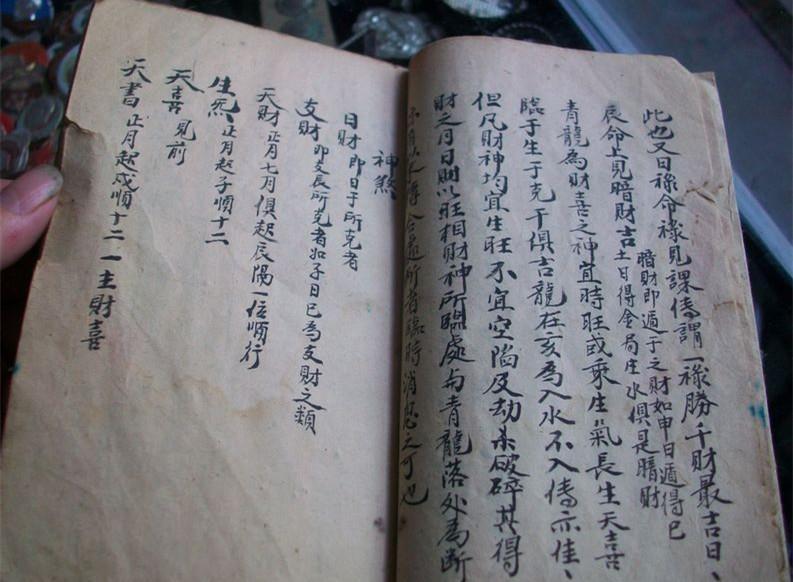 此也又日祿命祿見課傳謂一祿勝千財最吉日、
暗財即遁干之財如申日遁得巳
辰命上見暗財吉土日得金局庄水俱是暗財
青龍為財喜之神宜時旺或乘生氣長生天喜
臨于生于克干俱吉龍在亥為入水不入傳亦佳、
但凡財神均宜生旺不宜空陷及劫杀破碎其得
財之月日則以旺相財神所臨處与青龍落处為断
所者臨時消息之可也
神煞
日財即日干所克者
支財即支辰所克者如子日巳為支財之類
天財正月七月俱起辰陽一位順行
生炁正月起子順十二
天喜見前
天書正月起戌順十二一主財喜